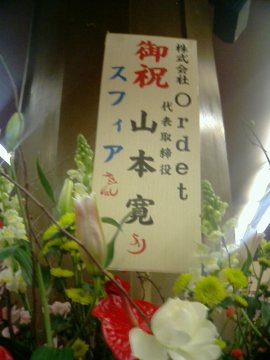 株式会社Ordet
代表取締役
山本寛より
御祝
スフィア